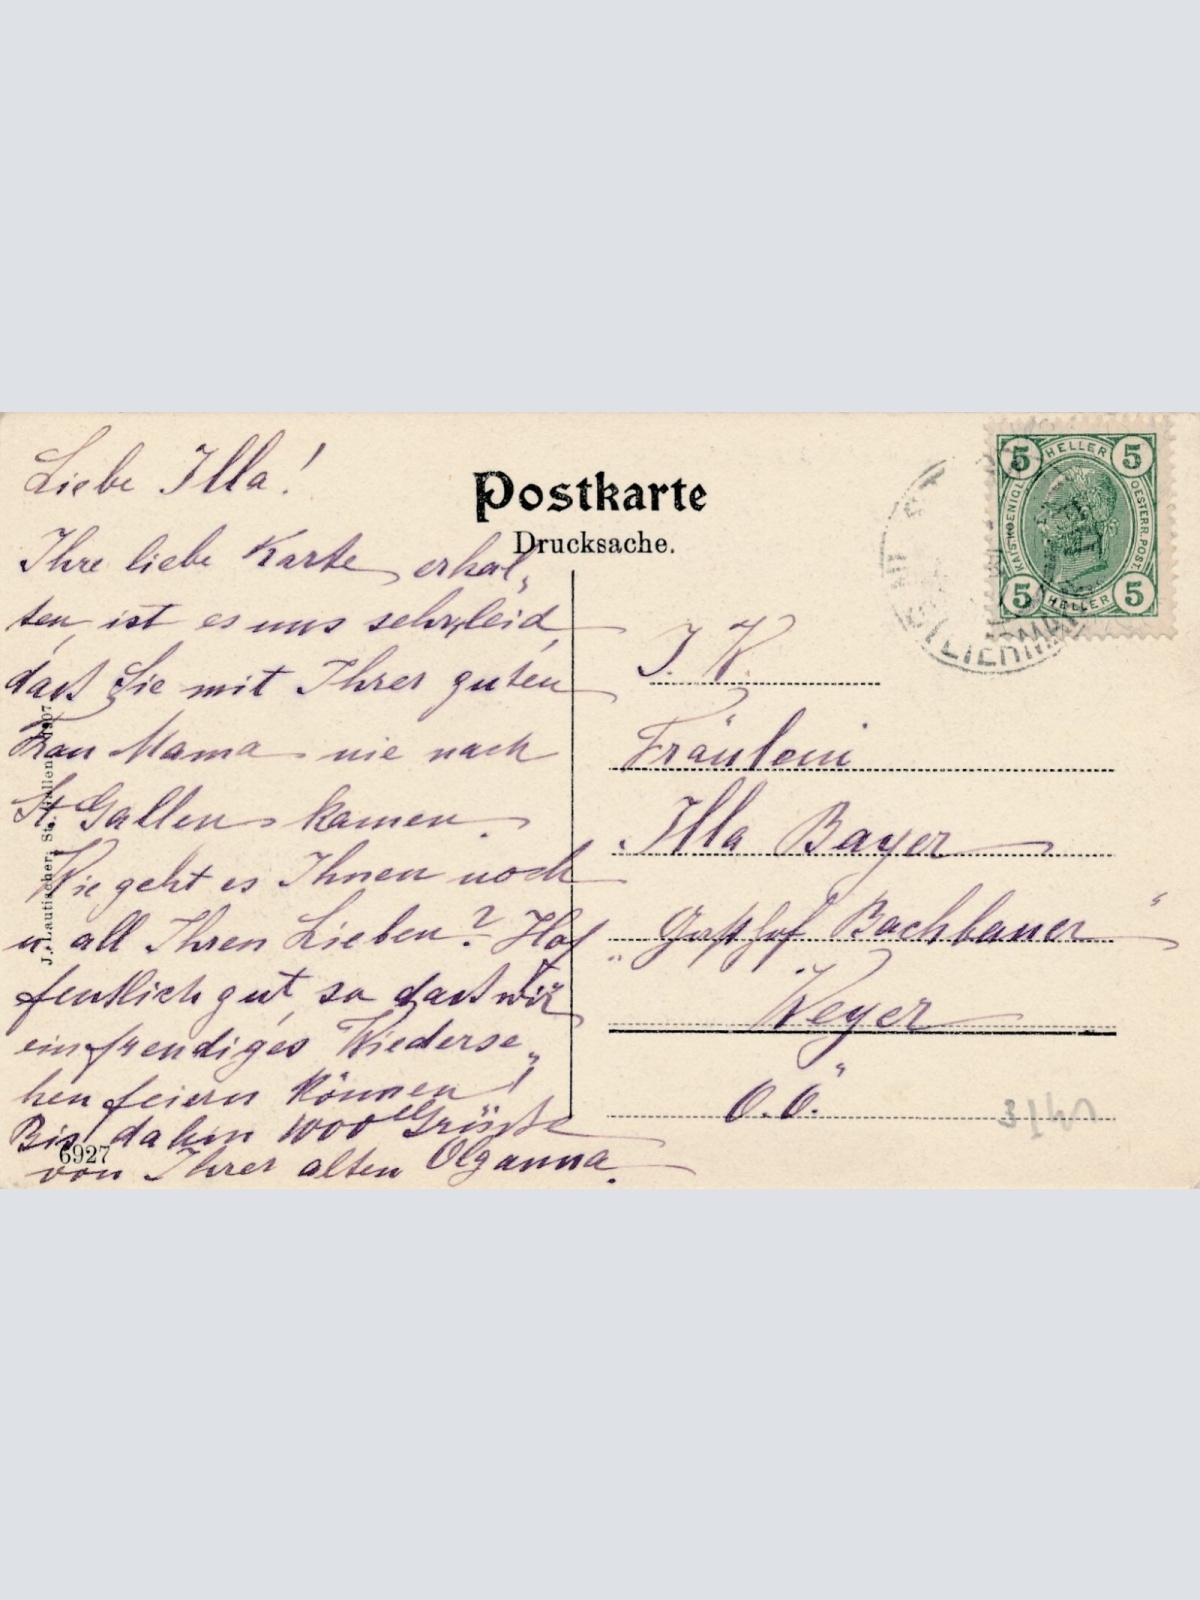 Liebe Illa!
Ihre liebe Karte erhal„
ten, ist es uns sehr leid,
dass Sie mit Ihrer guten
Frau Mama nie nach
St. Gallen kamen.
Wie geht es Ihnen noch
u. all Ihren Lieben? Hof
fentlich gut, so dass wir
ein freudiges Wiederse„
hen feiern können!
Bis dahin 1000 Grüsse
von Ihrer alten Olganna.
6927
J. Lautischer, St. Gallen 1907
Postkarte
Drucksache.
5 HELLER 5
KAIS. KOENIGL. OESTERR. POST.
5 HELLER 5
STEIERMARK
I. H.
Fräulein
Illa Bayer
„Gasthof Bachbauer“
Weyer
O.Ö.